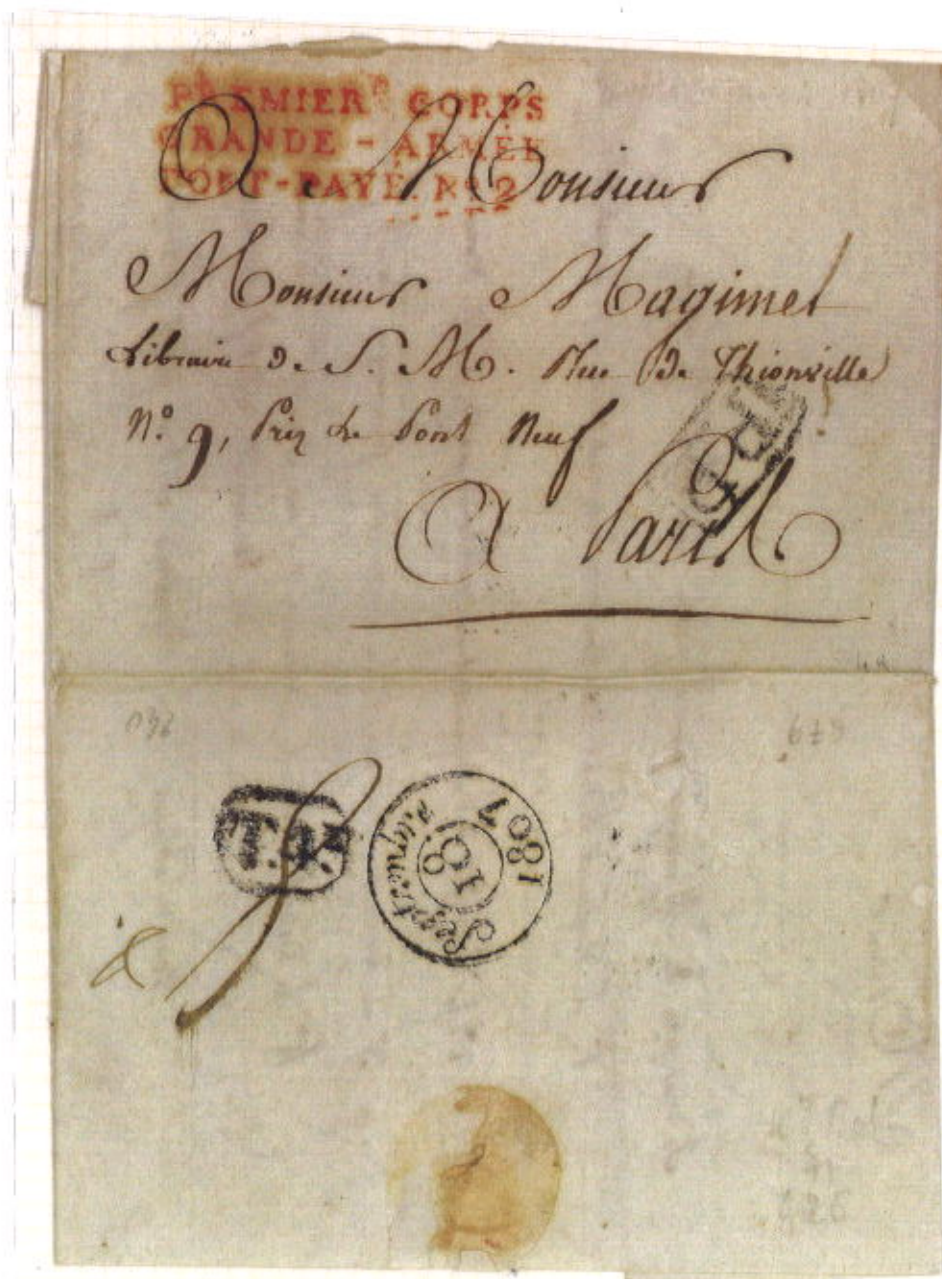 PREMIER CORPS
GRANDE - ARMÉE
PORT-PAYÉ. Nº 2
A Monsieur
Monsieur Magimel
Libraire De S. M. Rue De Thionville
Nº 9, Près Le Pont Neuf
P.P.
A Paris
Septembre
18
1807